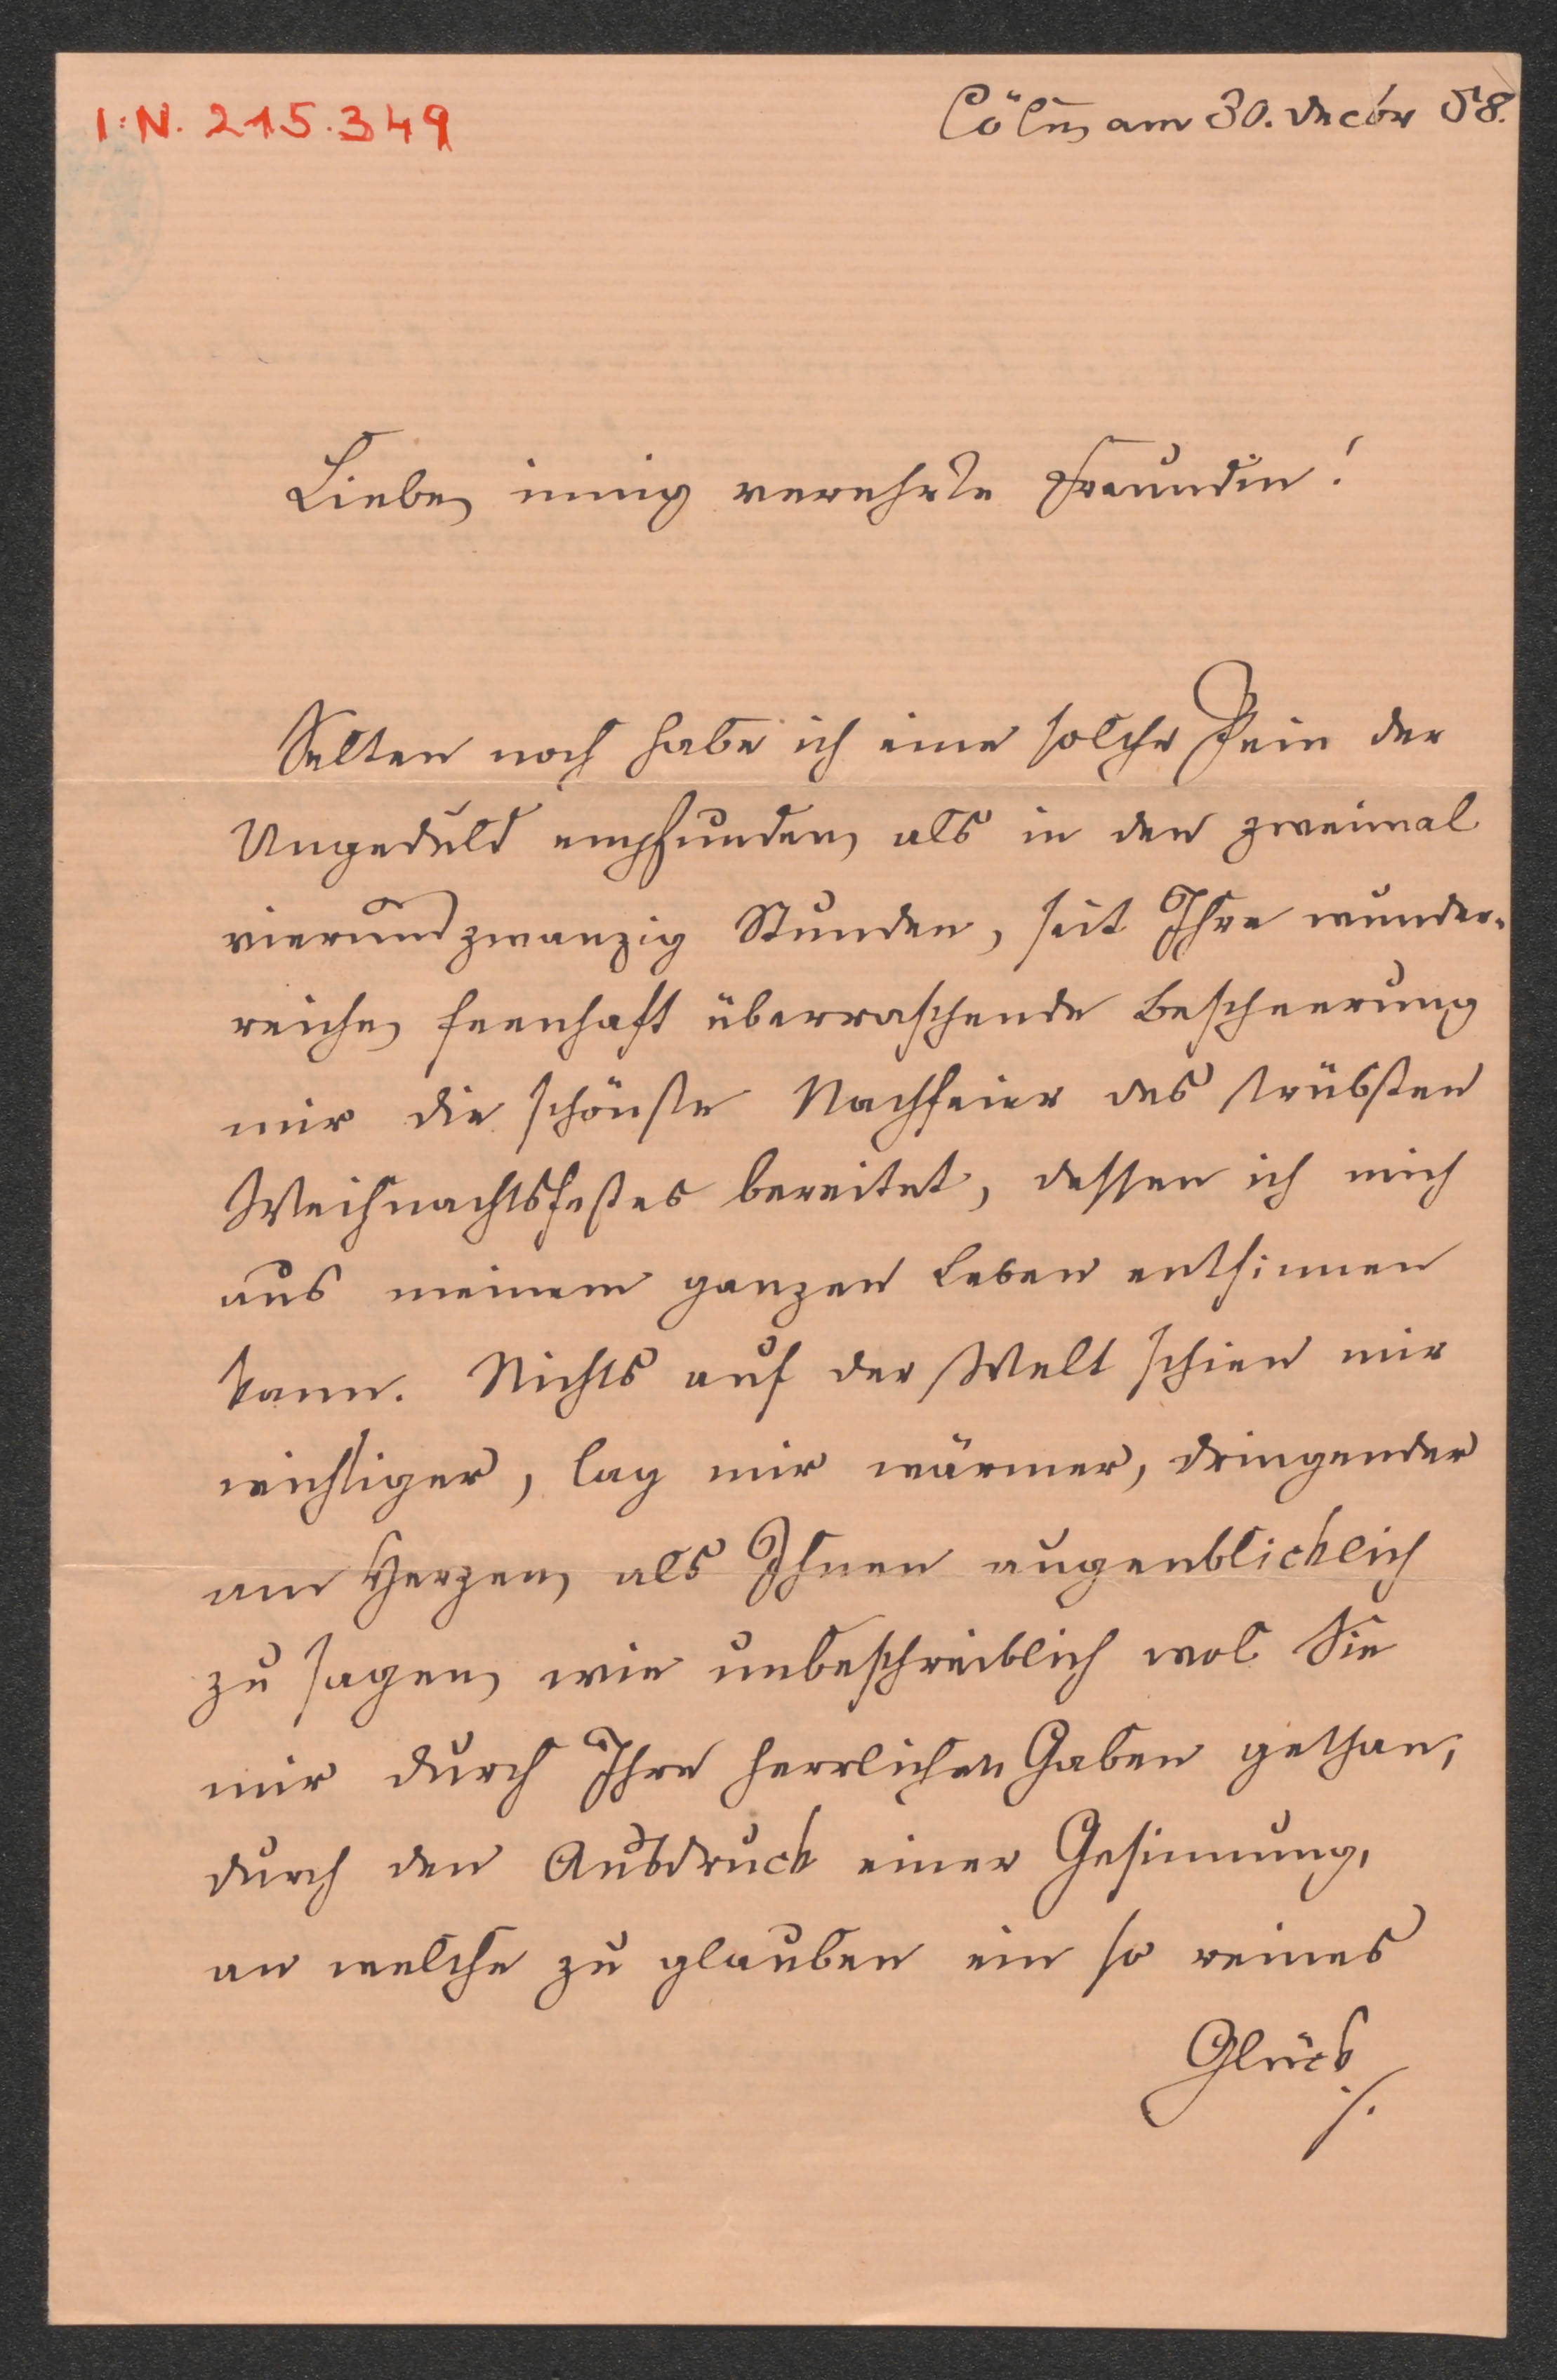 I:N. 215.349
Cöln, am 30. Decbr 58.
Liebe, innig verehrte Freundin!
Selten noch habe ich eine solche Pein der
Ungeduld empfunden, als in den zweimal
vierundzwanzig Stunden, seit Ihre wunder-
reiche, feenhaft überraschende Bescheerung
mir die schönste Nachfeier des trübsten
Weihnachtsfestes bereitet, dessen ich mich
aus meinem ganzen Leben entsinnen
kann. Nichts auf der Welt schien mir
wichtiger, lag mir wärmer, dringender
am Herzen, als Ihnen augenblicklich
zu sagen, wie unbeschreiblich wol Sie
mir durch Ihre herrlichen Gaben gethan,
durch den Ausdruck einer Gesinnung,
an welche zu glauben ein so reines
Glück
./.